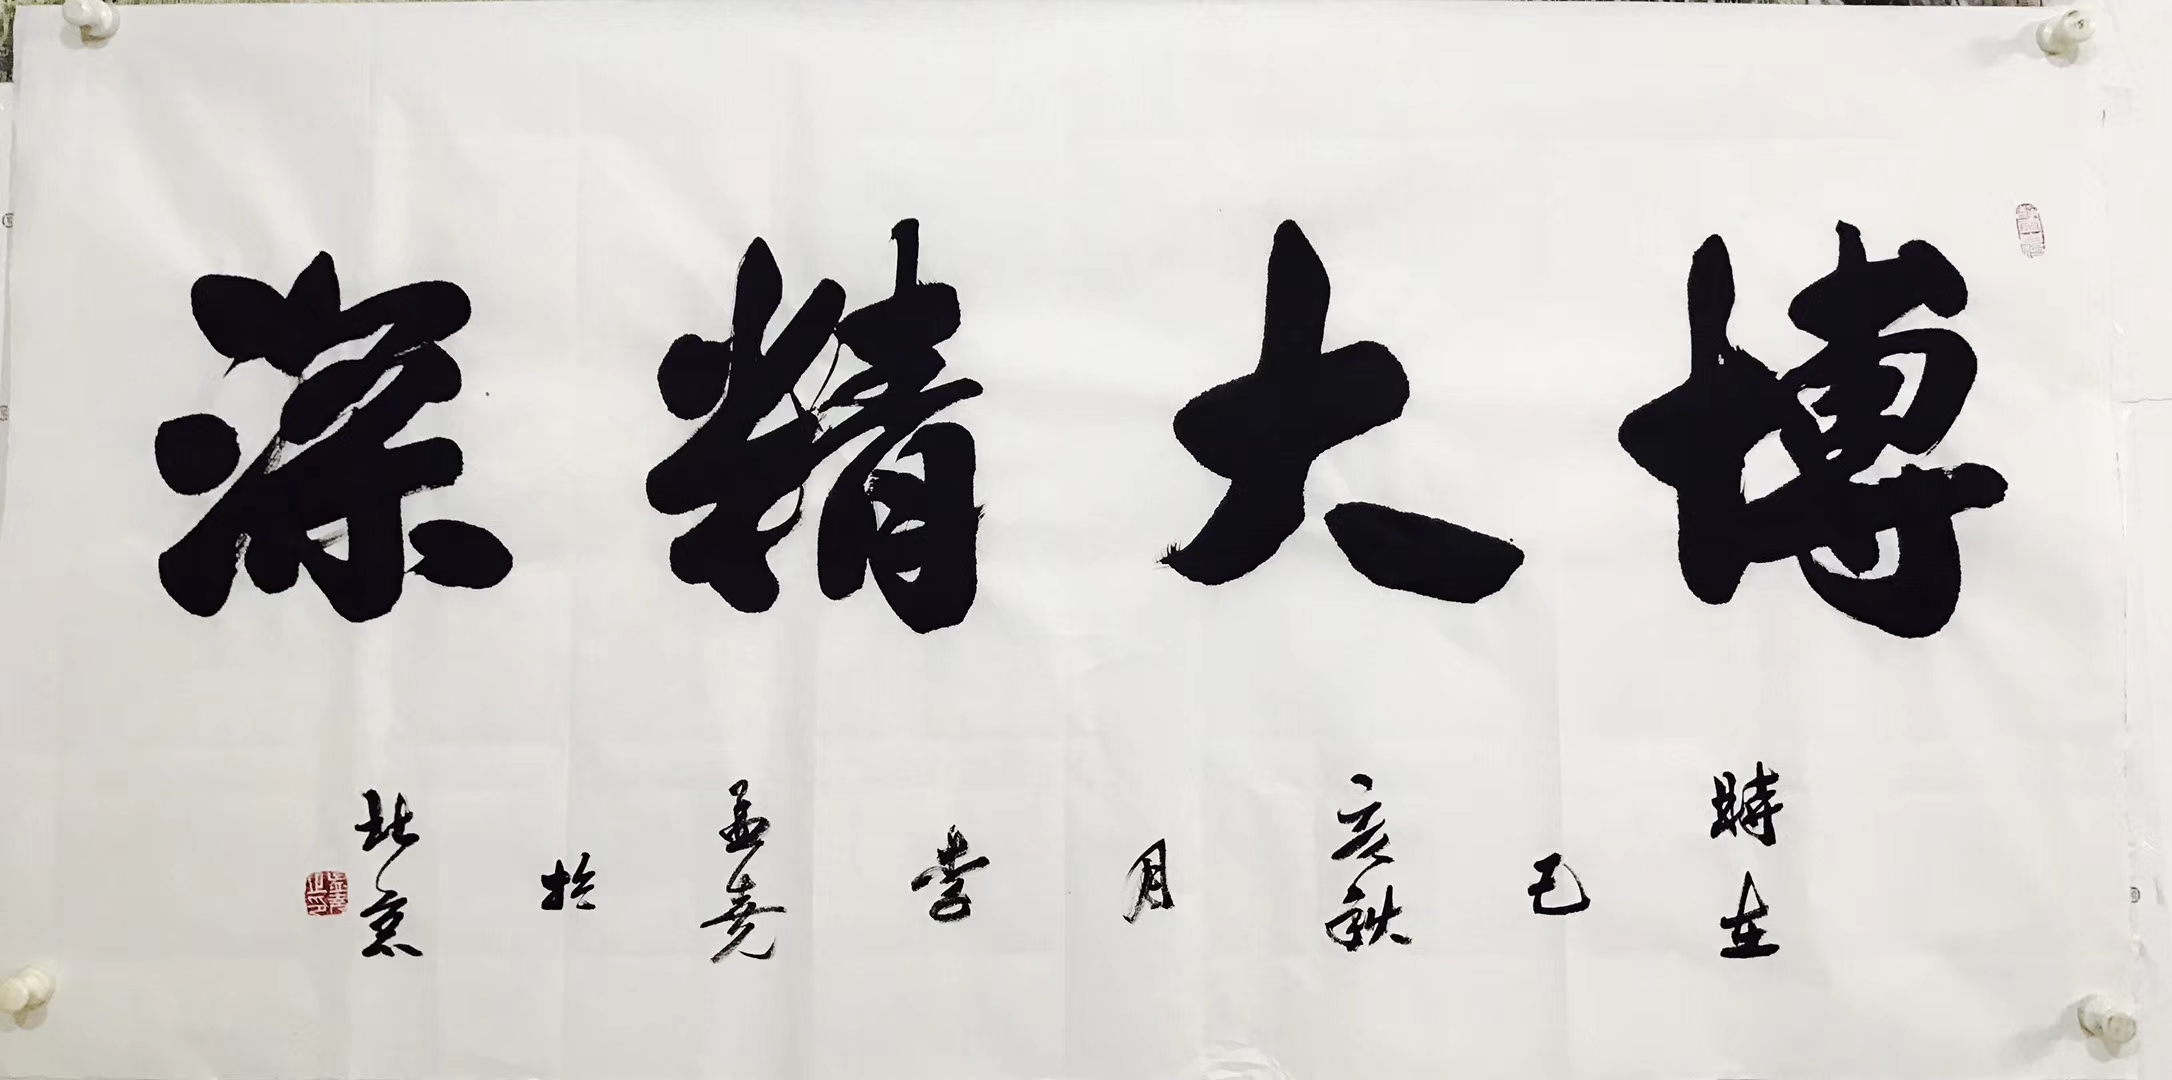 博大精深
時在己亥秋月李孟堯於北京